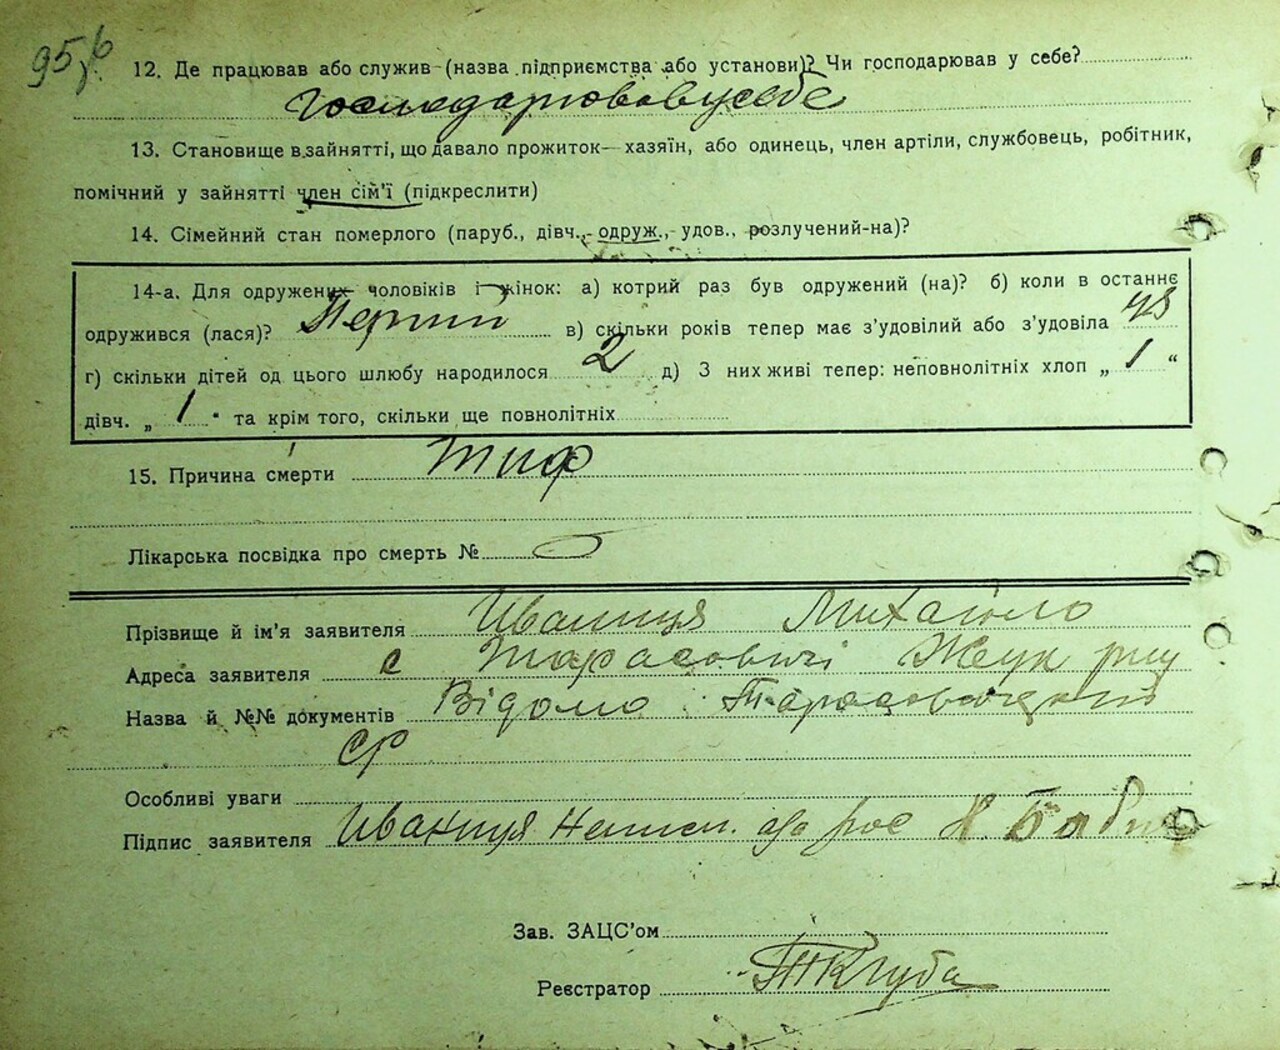 95
12. Де працював або служив (назва підприємства або установи)? Чи господарював у себе?
господарював у себе
13. Становище в зайнятті, що давало прожиток — хазяїн, або одинець, член артілі, службовець, робітник,
помічний у зайнятті член сім'ї (підкреслити)
14. Сімейний стан померлого (паруб., дівч., одруж., удов., розлучений-на)?
14-а. Для одружених чоловіків і жінок: а) котрий раз був одружений (на)? б) коли в останнє
одружився (лася)? Перший в) скільки років тепер має з'удовілий або з'удовіла 43
г) скільки дітей од цього шлюбу народилося 2 д) З них живі тепер: неповнолітніх хлоп „ 1 “
дівч. „ 1 “ та крім того, скільки ще повнолітніх
15. Причина смерти тиф
Лікарська посвідка про смерть №
Прізвище й ім'я заявителя Иваниця Михайло
Адреса заявителя с Тарасовичі Жук
Назва й №№ документів Відомо Тарасовицький
СР
Особливі уваги
Підпис заявителя Иваниця Неписм. Н.
Зав. ЗАЦС'ом
Реєстратор